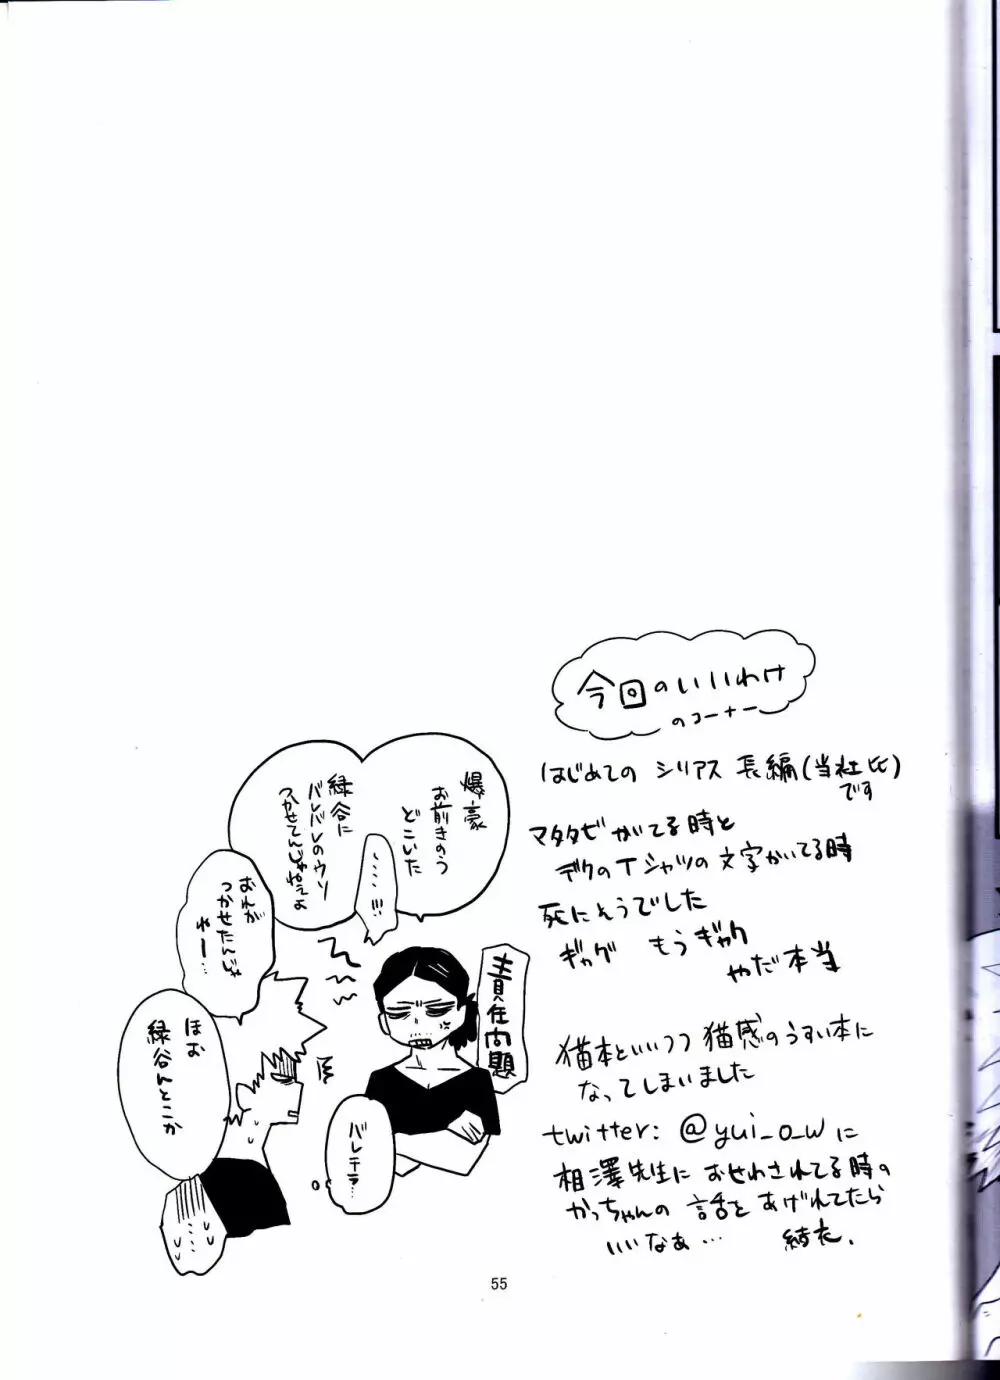 今回のいいわけ
のコーナー
はじめての シリアス 長編(当社比)
です
マタタビがでてる時と
デクのTシャツの文字かいてる時
死にそうでした
ギャグ もうギャグ
やだ本当
猫本といいつつ猫感のうすい本に
なってしまいました
twitter: @yui_o_wに
相澤先生に おせわされてる時の
かっちゃんの 話を あげれてたら
いいなぁ… 結衣.
爆豪
お前きのう
どこいた
……!!!
緑谷に
バレバレのウソ
つかせてんじゃねぇよ
おれが
つかせたんじゃ
ねー…
ほお
緑谷んとこか
……
責任問題
バレテラ…
55